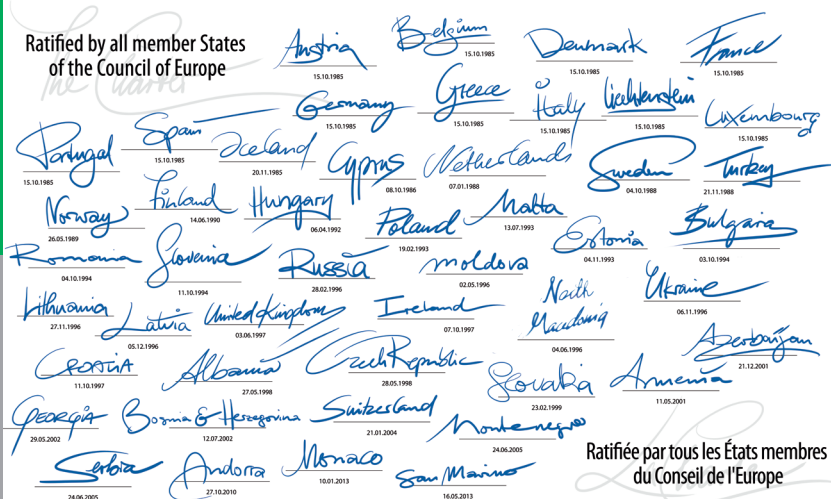 Ratified by all member States
of the Council of Europe
The Charter
Austria
15.10.1985
Belgium
15.10.1985
Denmark
15.10.1985
France
15.10.1985
Germany
15.10.1985
Greece
15.10.1985
Italy
15.10.1985
Liechtenstein
15.10.1985
Luxembourg
15.10.1985
Portugal
15.10.1985
Spain
15.10.1985
Iceland
20.11.1985
Cyprus
08.10.1986
Netherlands
07.01.1988
Sweden
04.10.1988
Turkey
21.11.1988
Norway
26.05.1989
Finland
14.06.1990
Hungary
06.04.1992
Poland
19.02.1993
Malta
13.07.1993
Estonia
04.11.1993
Bulgaria
03.10.1994
Romania
04.10.1994
Slovenia
11.10.1994
Russia
28.02.1996
Moldova
02.05.1996
North
Macedonia
04.06.1996
Ukraine
06.11.1996
Lithuania
27.11.1996
Latvia
05.12.1996
United Kingdom
03.06.1997
Ireland
07.10.1997
Croatia
11.10.1997
Albania
27.05.1998
Czech Republic
28.05.1998
Slovakia
23.02.1999
Armenia
11.05.2001
Azerbaijan
21.12.2001
Georgia
29.05.2002
Bosnia & Herzegovina
12.07.2002
Switzerland
21.01.2004
Montenegro
24.06.2005
Serbia
24.06.2005
Andorra
27.10.2010
Monaco
10.01.2013
San Marino
16.05.2013
Ratifiée par tous les États membres
du Conseil de l'Europe